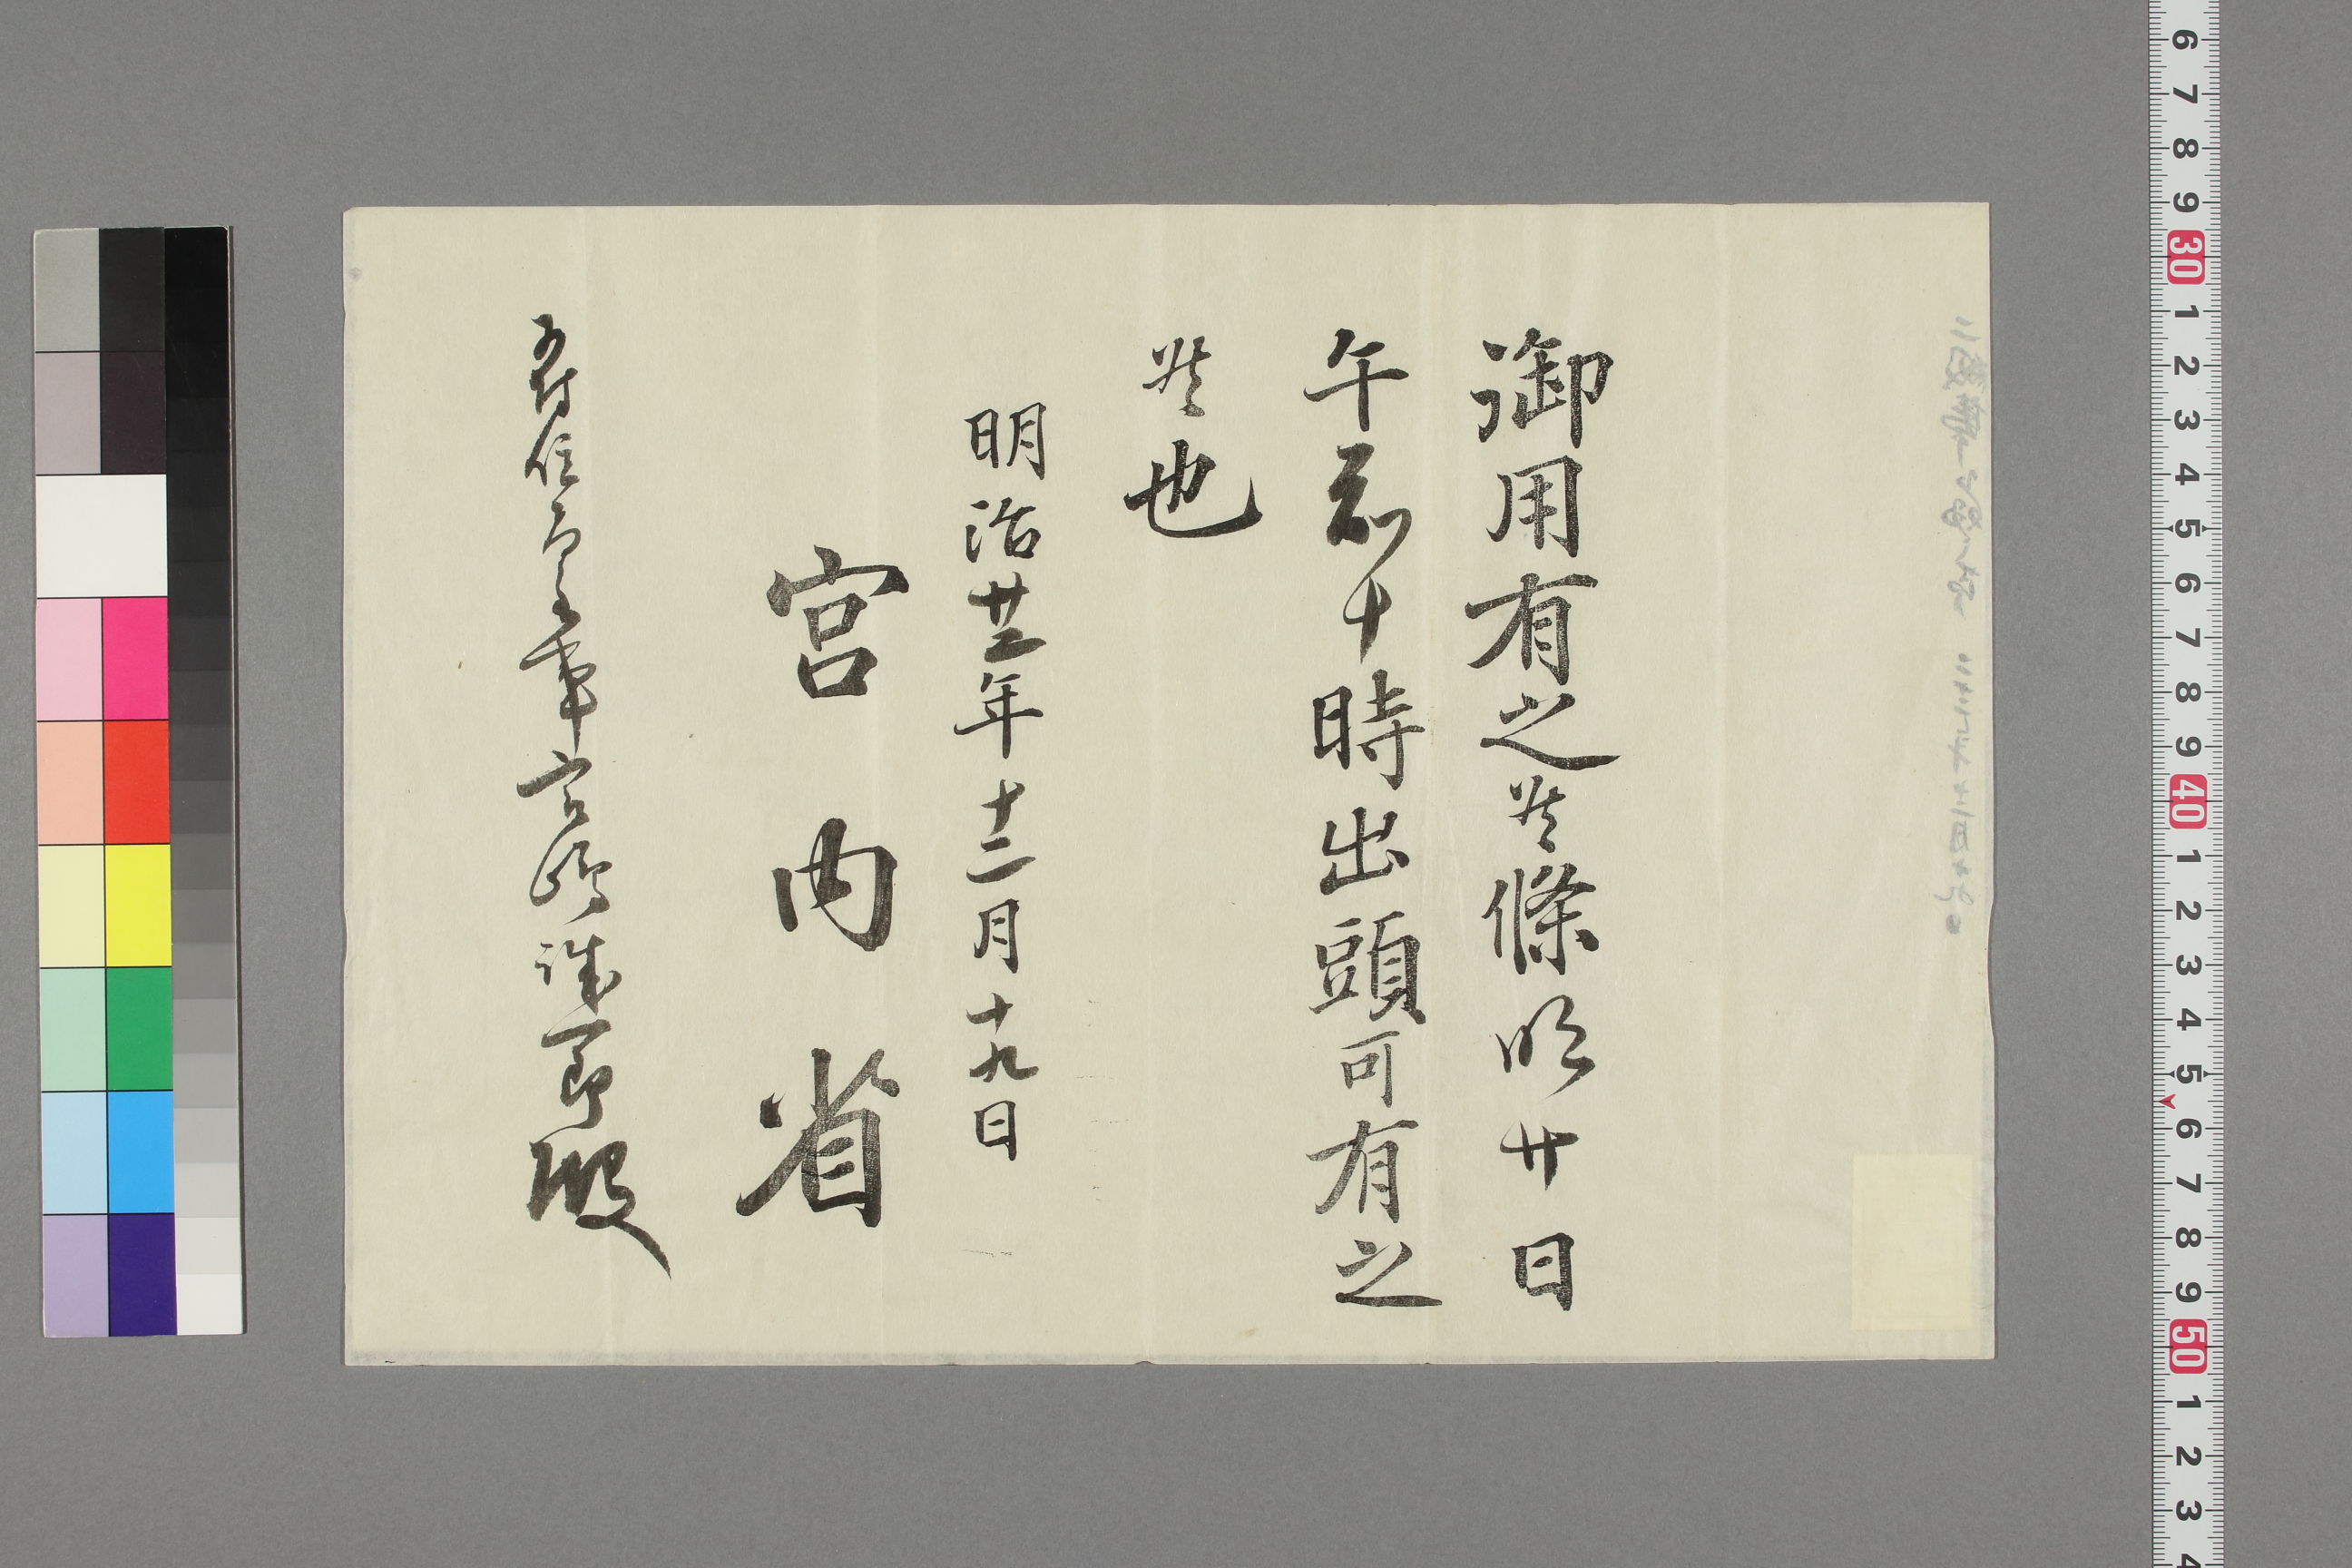 御用有之候條明廿日
午前十時出頭可有之
候也
明治廿三年十二月十九日
宮内省
爵位局主事宮嶋誠一郎殿
6 7 8 9 30 1 2 3 4 5 6 7 8 9 40 1 2 3 4 5 6 7 8 9 50 1 2 3 4